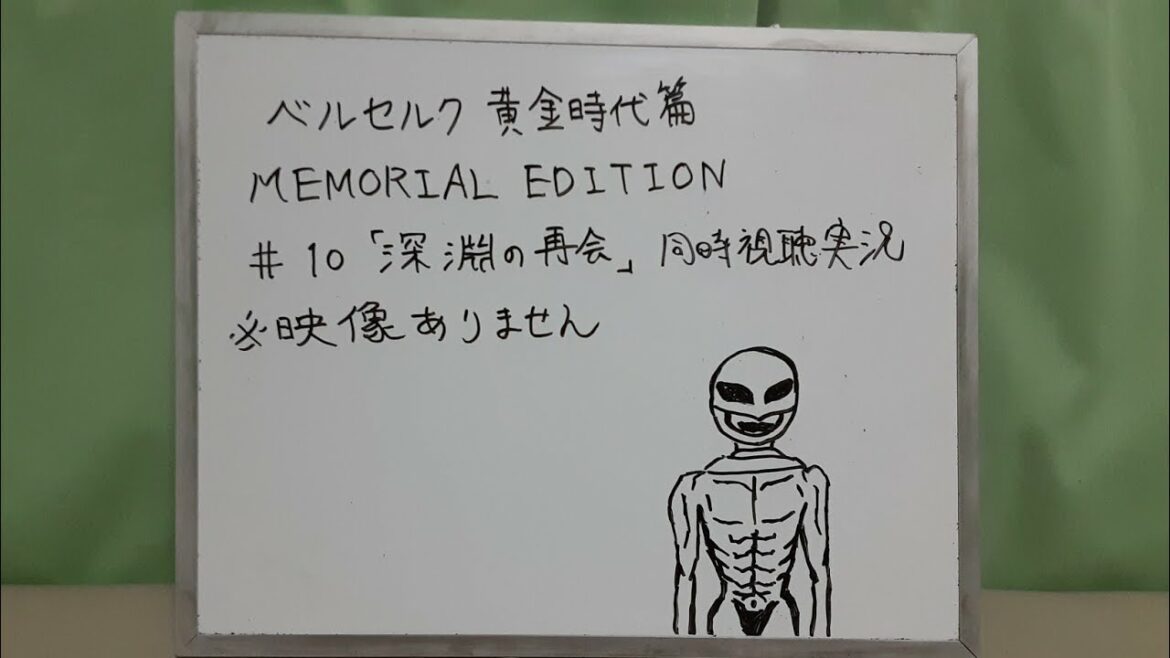 ベルセルク 黄金時代篇
MEMORIAL EDITION
#10「深淵の再会」同時視聴実況
※映像ありません